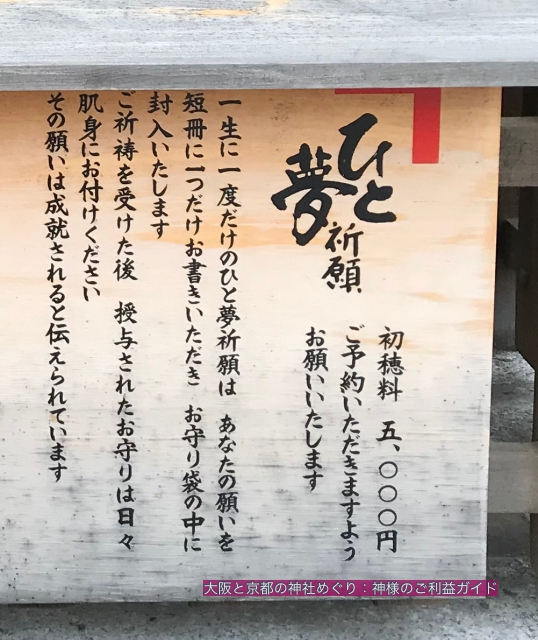 ひと夢祈願
初穂料 五、〇〇〇円
ご予約いただきますよう
お願いいたします
一生に一度だけのひと夢祈願は あなたの願いを
短冊に一つだけお書きいただき お守り袋の中に
封入いたします
ご祈祷を受けた後 授与されたお守りは日々
肌身にお付けください
その願いは成就されると伝えられています
大阪と京都の神社めぐり：神様のご利益ガイド